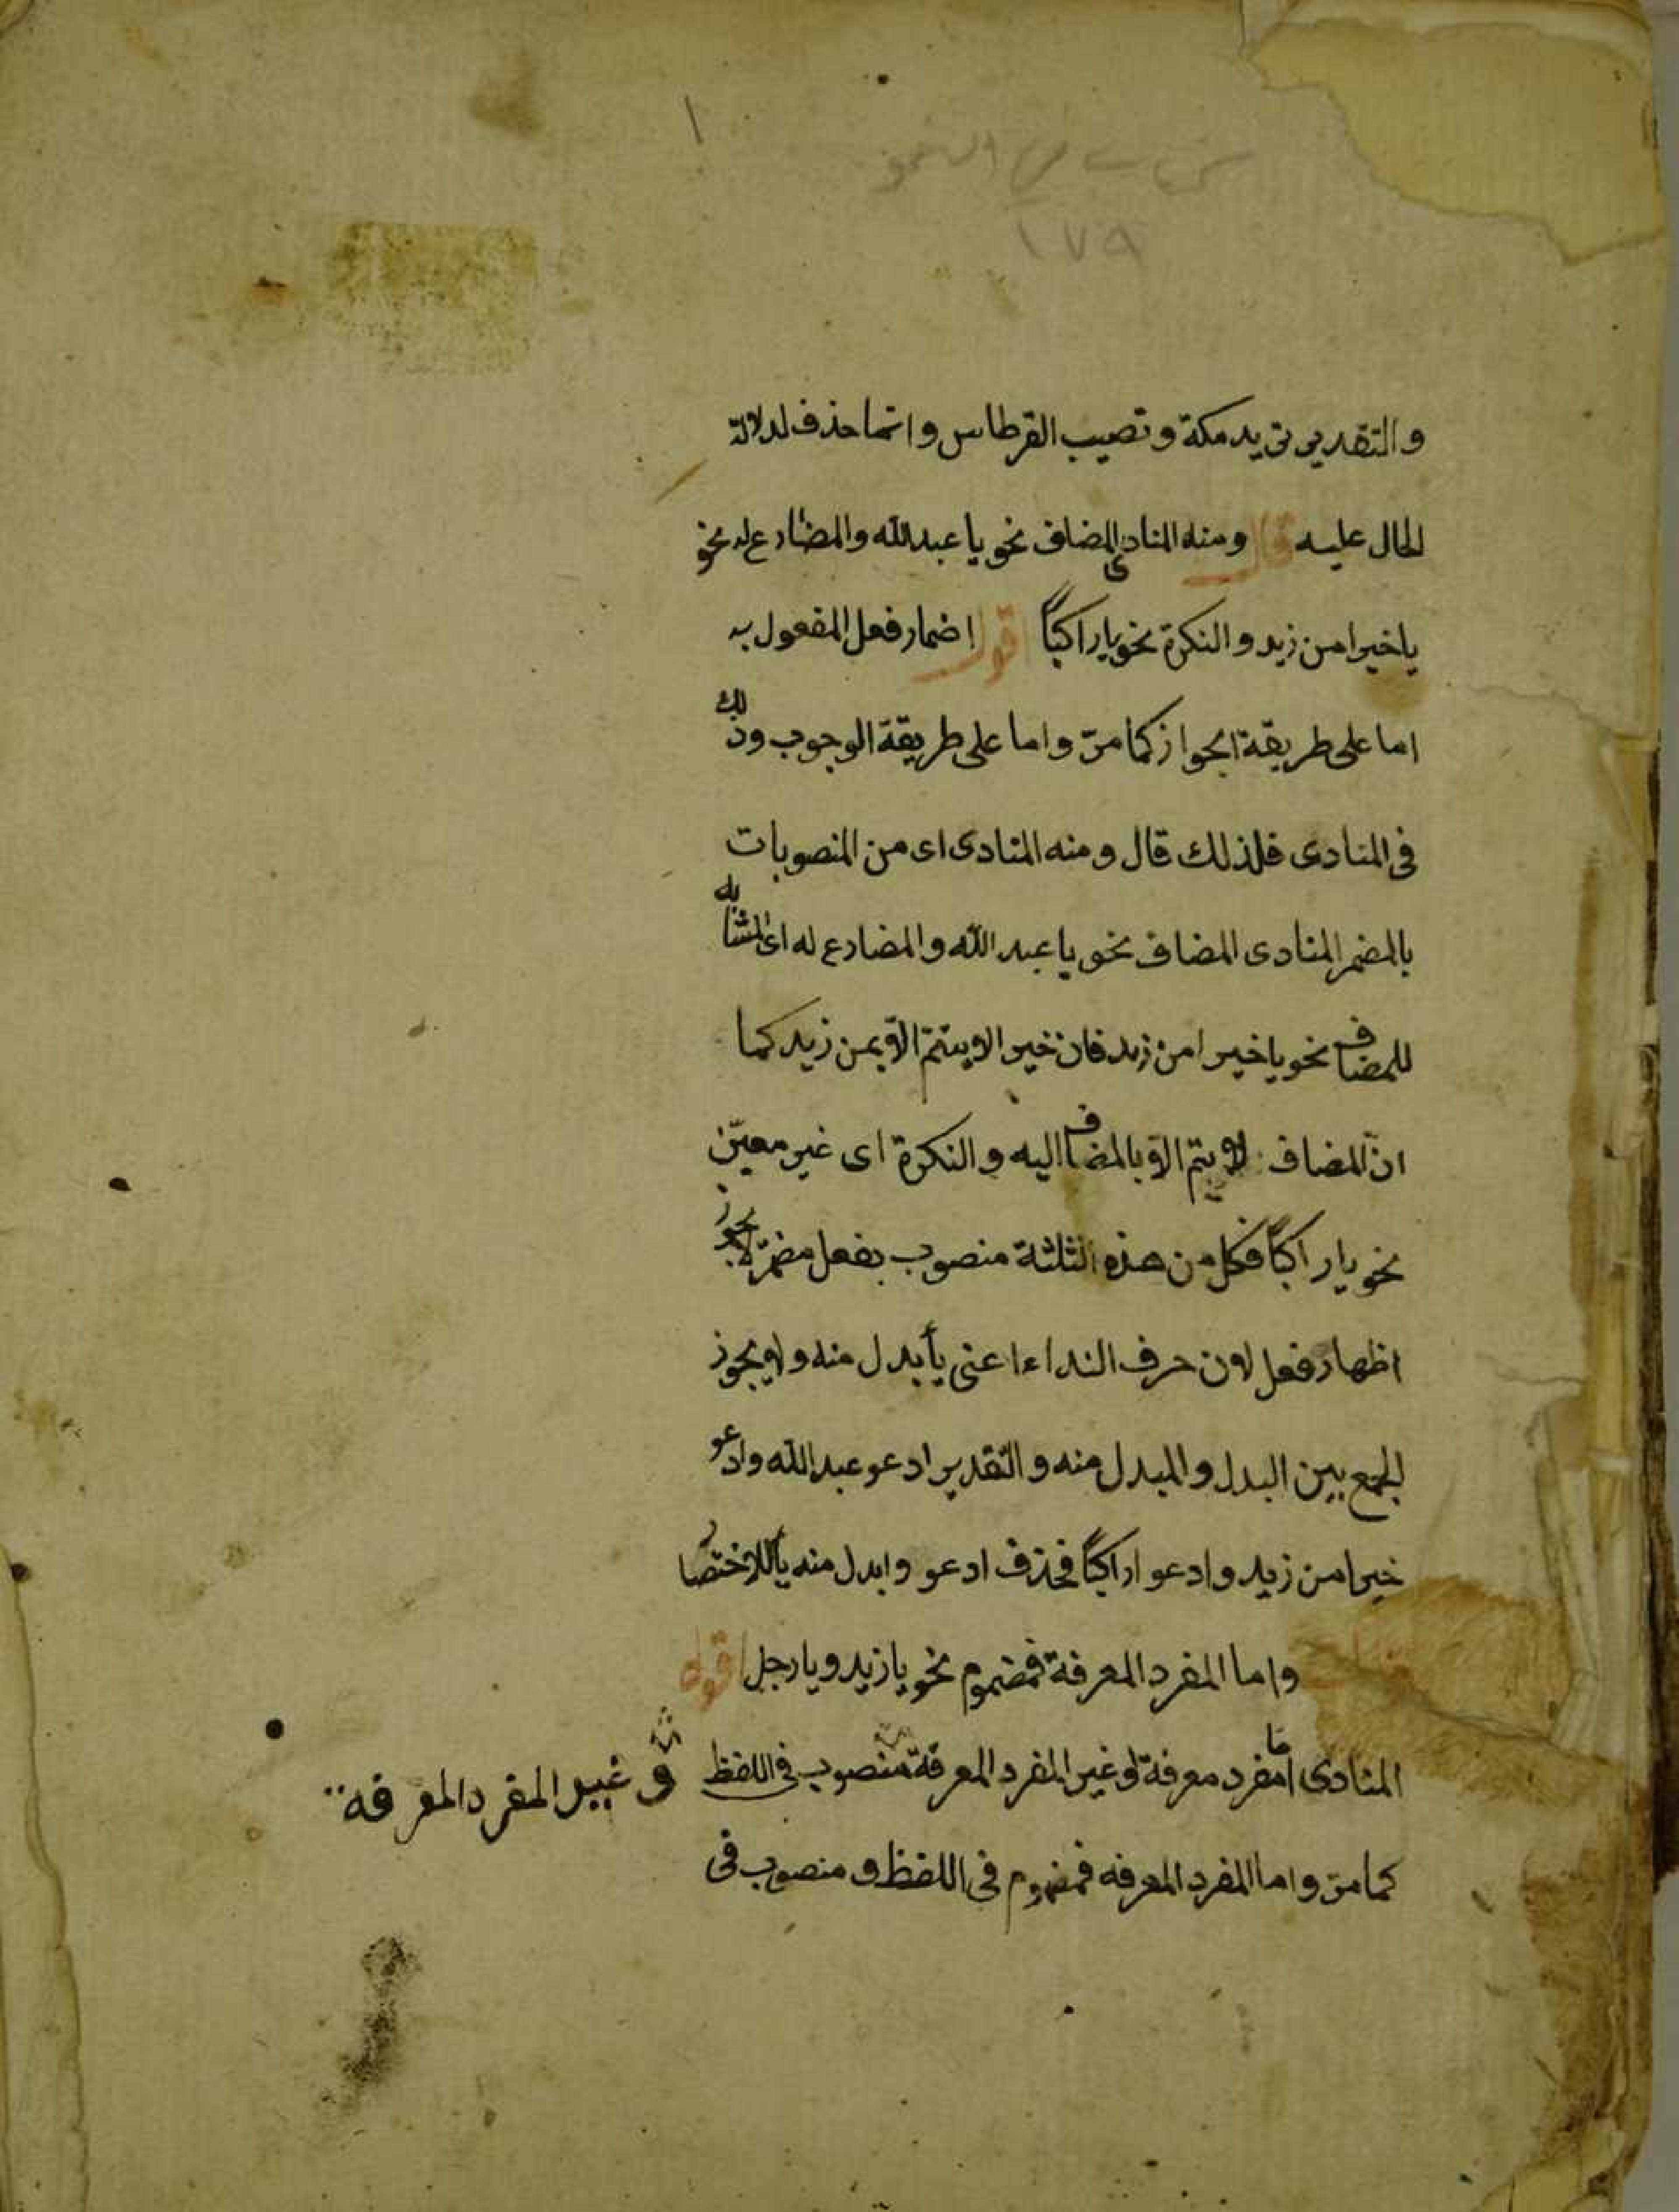 ١
كتاب في النحو
١٧٩
والتقدير تريد مكة وتصيب القرطاس وانما حذف لدلالة
الحال عليه قال ومنه المنادى المضاف نحو يا عبد الله والمضارع له نحو
يا خيرا من زيد والنكرة نحو يا راكبًا اقول اضمار فعل المفعول به
اما على طريقة الجواز كما مرّ واما على طريقة الوجوب وذلك
فى المنادى فلذلك قال ومنه المنادى اى من المنصوبات
بالمضمر المنادى المضاف نحو يا عبد الله والمضارع له اى المشابه
للمضاف نحو يا خيرا من زيد فان خيرا لا يتمّ الّا بمن زيد كما
انّ المضاف لا يتم الّا بالمضاف اليه والنكرة اى غير معيّن
نحو يا راكبًا فكل من هذه الثلثة منصوب بفعل مضمر لا يجوز
اظهار فعل لان حرف النداء اعنى يا بدل منه ولا يجوز
الجمع بين البدل والمبدل منه والتقدير ادعو عبد الله وادعو
خيرا من زيد وادعو اراكبًا فحذف ادعو وابدل منه يا للاختصار
قال واما المفرد المعرفة فمضموم نحو يا زيد ويا رجل اقول
المنادى اما مفرد معرفة او غير المفرد المعرفة منصوب فى اللفظ
و غير المفرد المعرفة
كما مرّ واما المفرد المعرفه فمضموم فى اللفظ و منصوب فى